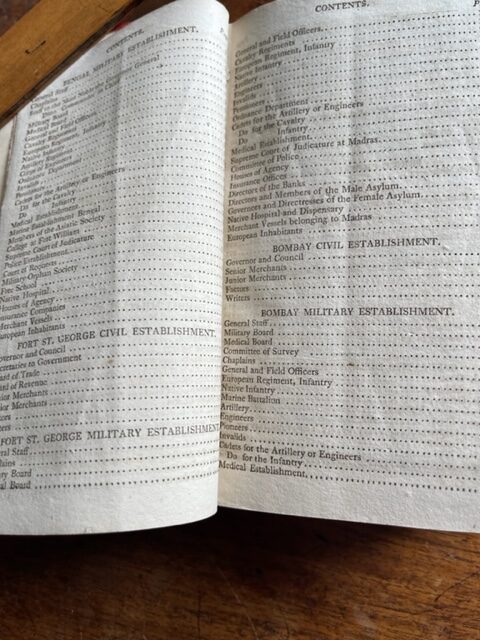 CONTENTS.
BENGAL MILITARY ESTABLISHMENT.
General Staff
Chaplains
Military Board
Medical Board
General and Field Officers
Cavalry Regiments
European Regiment, Infantry
Native Infantry
Artillery Regiment
Corps of Engineers
Ordnance Department
Invalids
Cadets for the Artillery or Engineers
Do for the Cavalry
Do Infantry
Medical Establishment
Marine Establishment, Bengal
Members of the Asiatic Society
College of Fort William
Supreme Court of Judicature
Police Establishment
Court of Requests
Military Orphan Society
Free School
Native Hospital
Houses of Agency
Insurance Companies
Merchant Vessels
European Inhabitants
FORT ST. GEORGE CIVIL ESTABLISHMENT.
overnor and Council
ecretaries to Government
oard of Trade
ard of Revenue
nior Merchants
nior Merchants
tors
ters
FORT ST. GEORGE MILITARY ESTABLISHMENT
eral Staff
plains
ary Board
cal Board
CONTENTS.
General and Field Officers
Cavalry Regiments
European Regiment, Infantry
Native Infantry
Artillery
Engineers
Invalids
Pioneers
Ordnance Department
Cadets for the Artillery or Engineers
Do for the Cavalry
Do Infantry
Medical Establishment
Supreme Court of Judicature at Madras
Committee of Police
Houses of Agency
Insurance Offices
Directors of the Banks
Directors and Members of the Male Asylum
Governors and Directresses of the Female Asylum
Native Hospital and Dispensary
Merchant Vessels belonging to Madras
European Inhabitants
BOMBAY CIVIL ESTABLISHMENT.
Governor and Council
Senior Merchants
Junior Merchants
Factors
Writers
BOMBAY MILITARY ESTABLISHMENT.
General Staff
Military Board
Medical Board
Committee of Survey
Chaplains
General and Field Officers
European Regiment, Infantry
Native Infantry
Marine Battalion
Artillery
Engineers
Pioneers
Invalids
Cadets for the Artillery or Engineers
Do for the Infantry
Medical Establishment